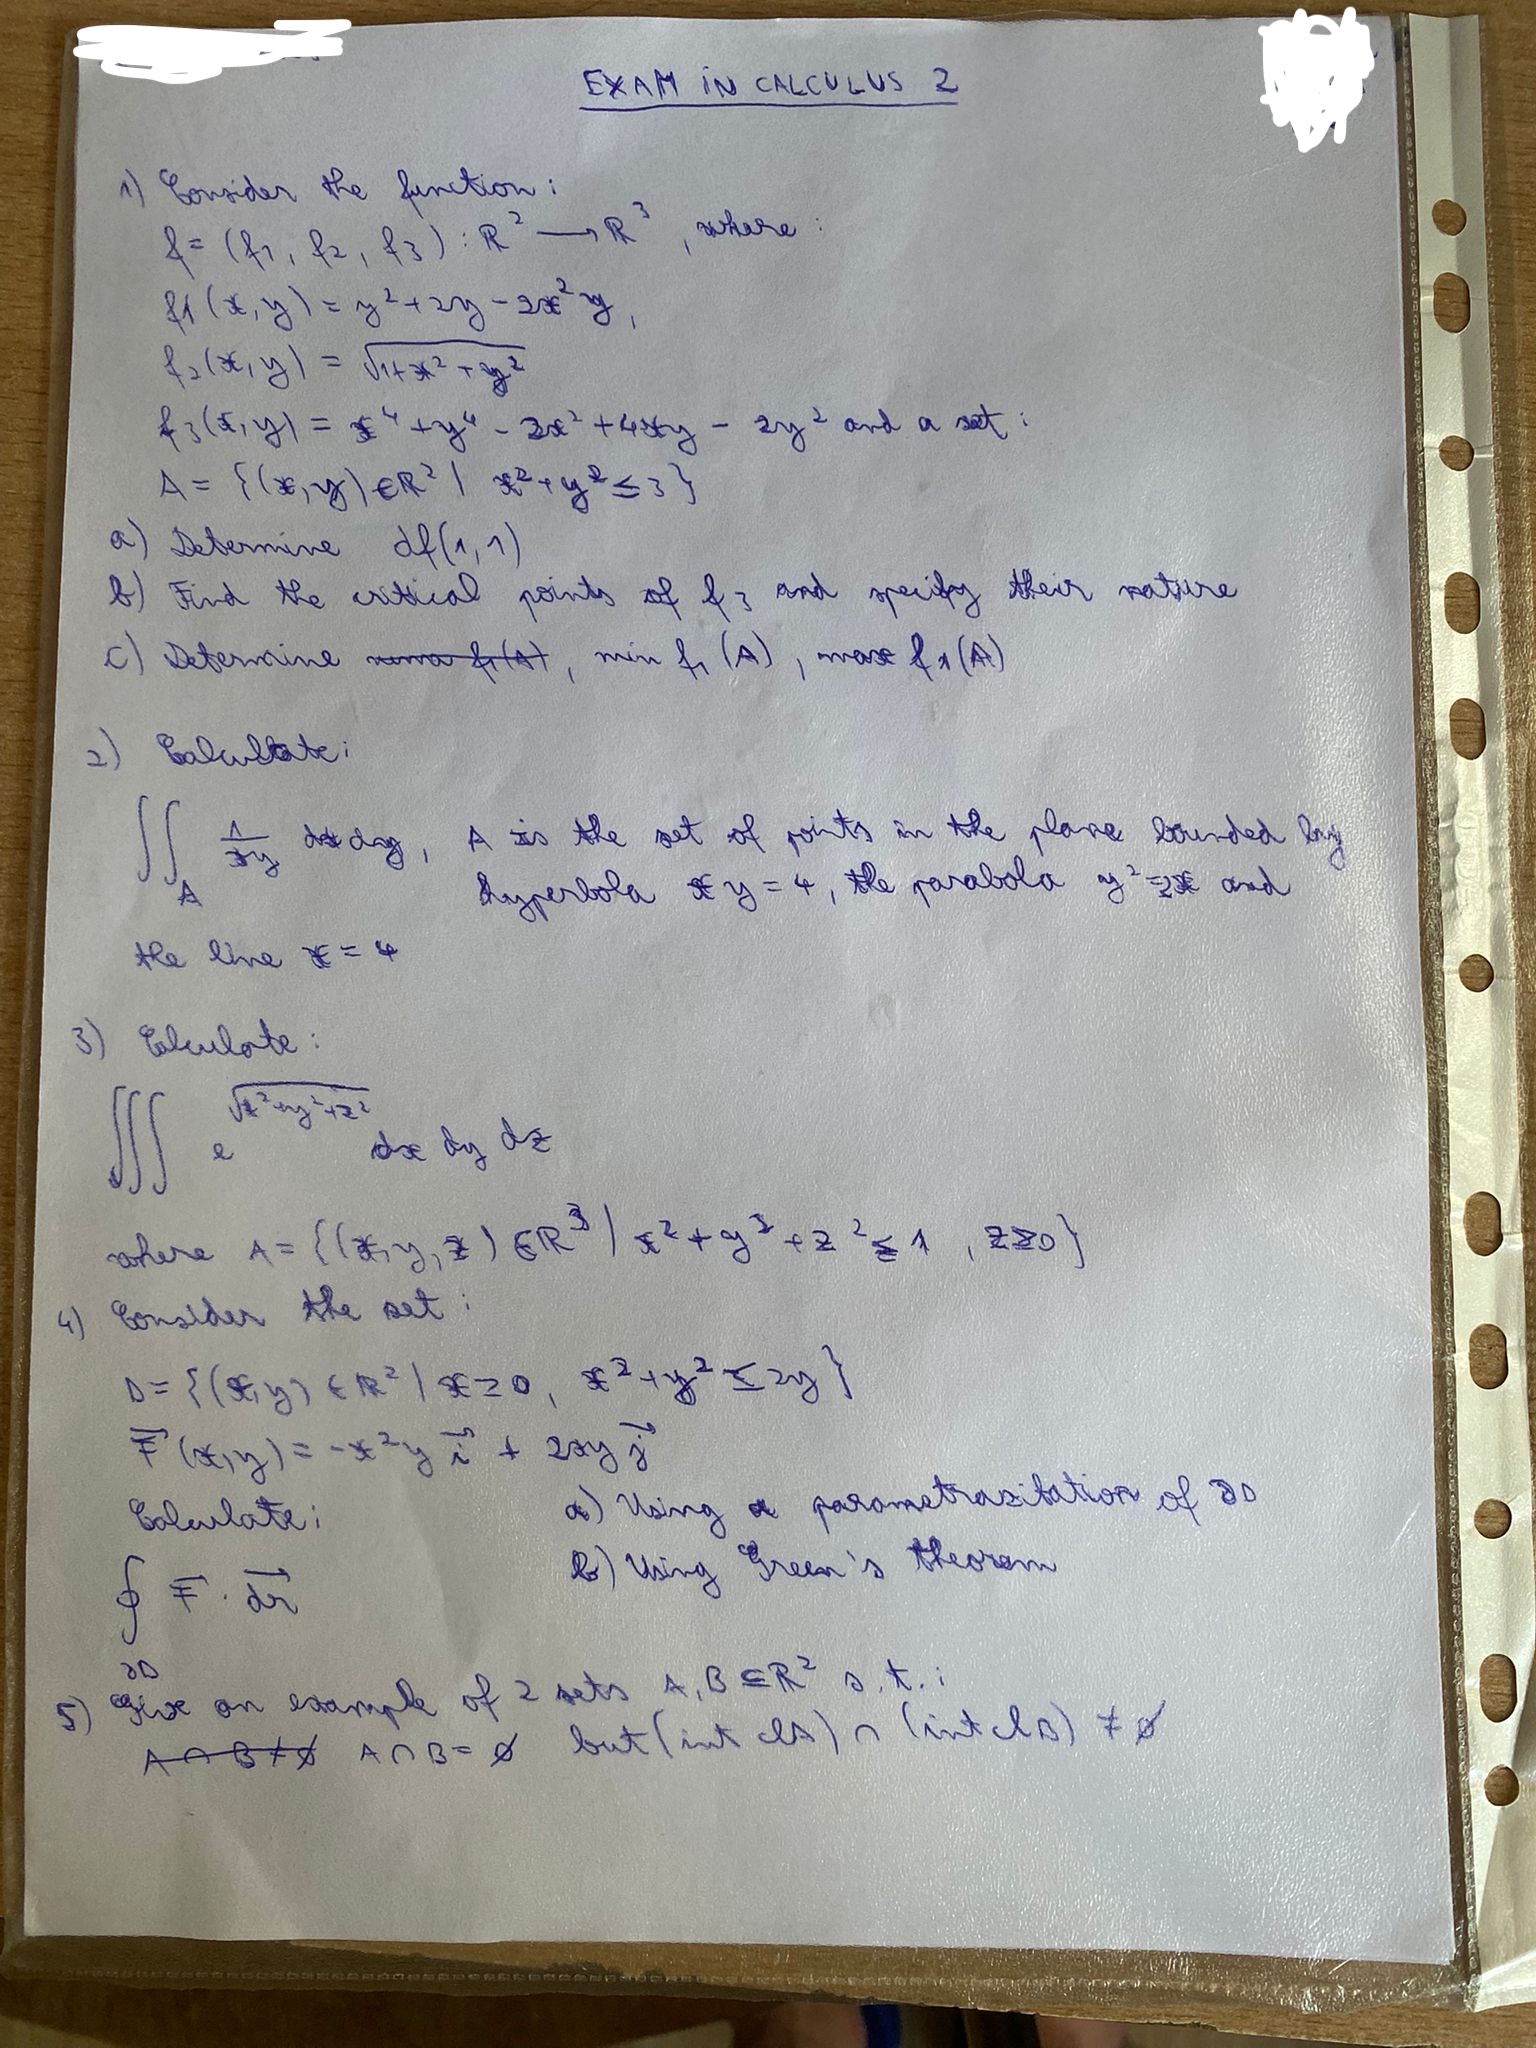 EXAM IN CALCULUS 2
1) Consider the function:
f = (f1, f2, f3) : ℝ² → ℝ³, where:
f1(x,y) = y² + 2y - 2x²y,
f2(x,y) = √(1+x²+y²)
f3(x,y) = x⁴ + y⁴ - 2x² + 4xy - 2y² and a set:
A = {(x,y) ∈ ℝ² | x² + y² ≤ 3}
a) Determine df(1,1)
b) Find the critical points of f3 and specify their nature
c) Determine , min f1(A), max f1(A)
2) Calculate:
∬_A 1/(xy) dx dy, A is the set of points in the plane bounded by
hyperbola xy = 4, the parabola y² = 2x and
the line x = 4
3) Calculate:
∭ e^√(x²+y²+z²) dx dy dz
where A = {(x,y,z) ∈ ℝ³ | x² + y² + z² ≤ 1, z ≥ 0}
4) Consider the set:
D = {(x,y) ∈ ℝ² | x ≥ 0, x² + y² ≤ 2y}
F⃗(x,y) = -x²y i⃗ + 2xy j⃗
Calculate: a) Using a parametrasitation of ∂D
∮_∂D F⃗ · dr⃗ b) Using Green's theorem
5) Give an example of 2 sets A, B ⊆ ℝ² s.t.:
A∩B≠∅ A∩B = ∅ but (int cl A) ∩ (int cl B) ≠ ∅